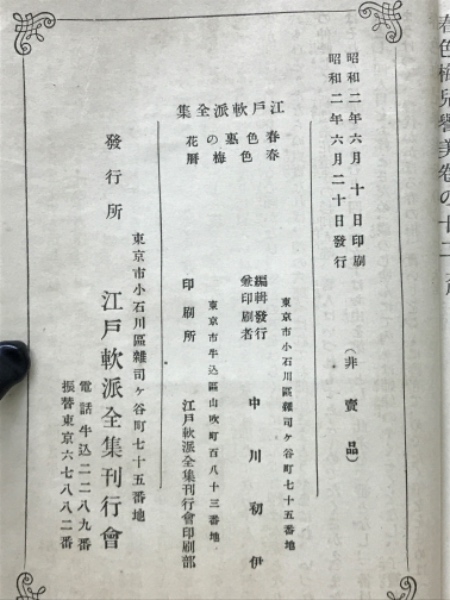 春色梅兒譽美卷の十二
昭和二年六月十日印刷
昭和二年六月二十日發行
(非賣品)
江戸軟派全集
春色梅暦
春色惠の花
東京市小石川區雜司ヶ谷町七十五番地
編輯發行兼印刷者 中川初伊
東京市牛込區山吹町百八十三番地
印刷所 江戸軟派全集刊行會印刷部
東京市小石川區雜司ヶ谷町七十五番地
發行所 江戸軟派全集刊行會
電話牛込二二八九番
振替東京六七八八二番